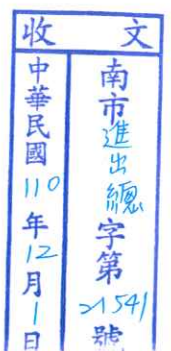 收文
南市進出總字第21541號
中華民國110年12月1日